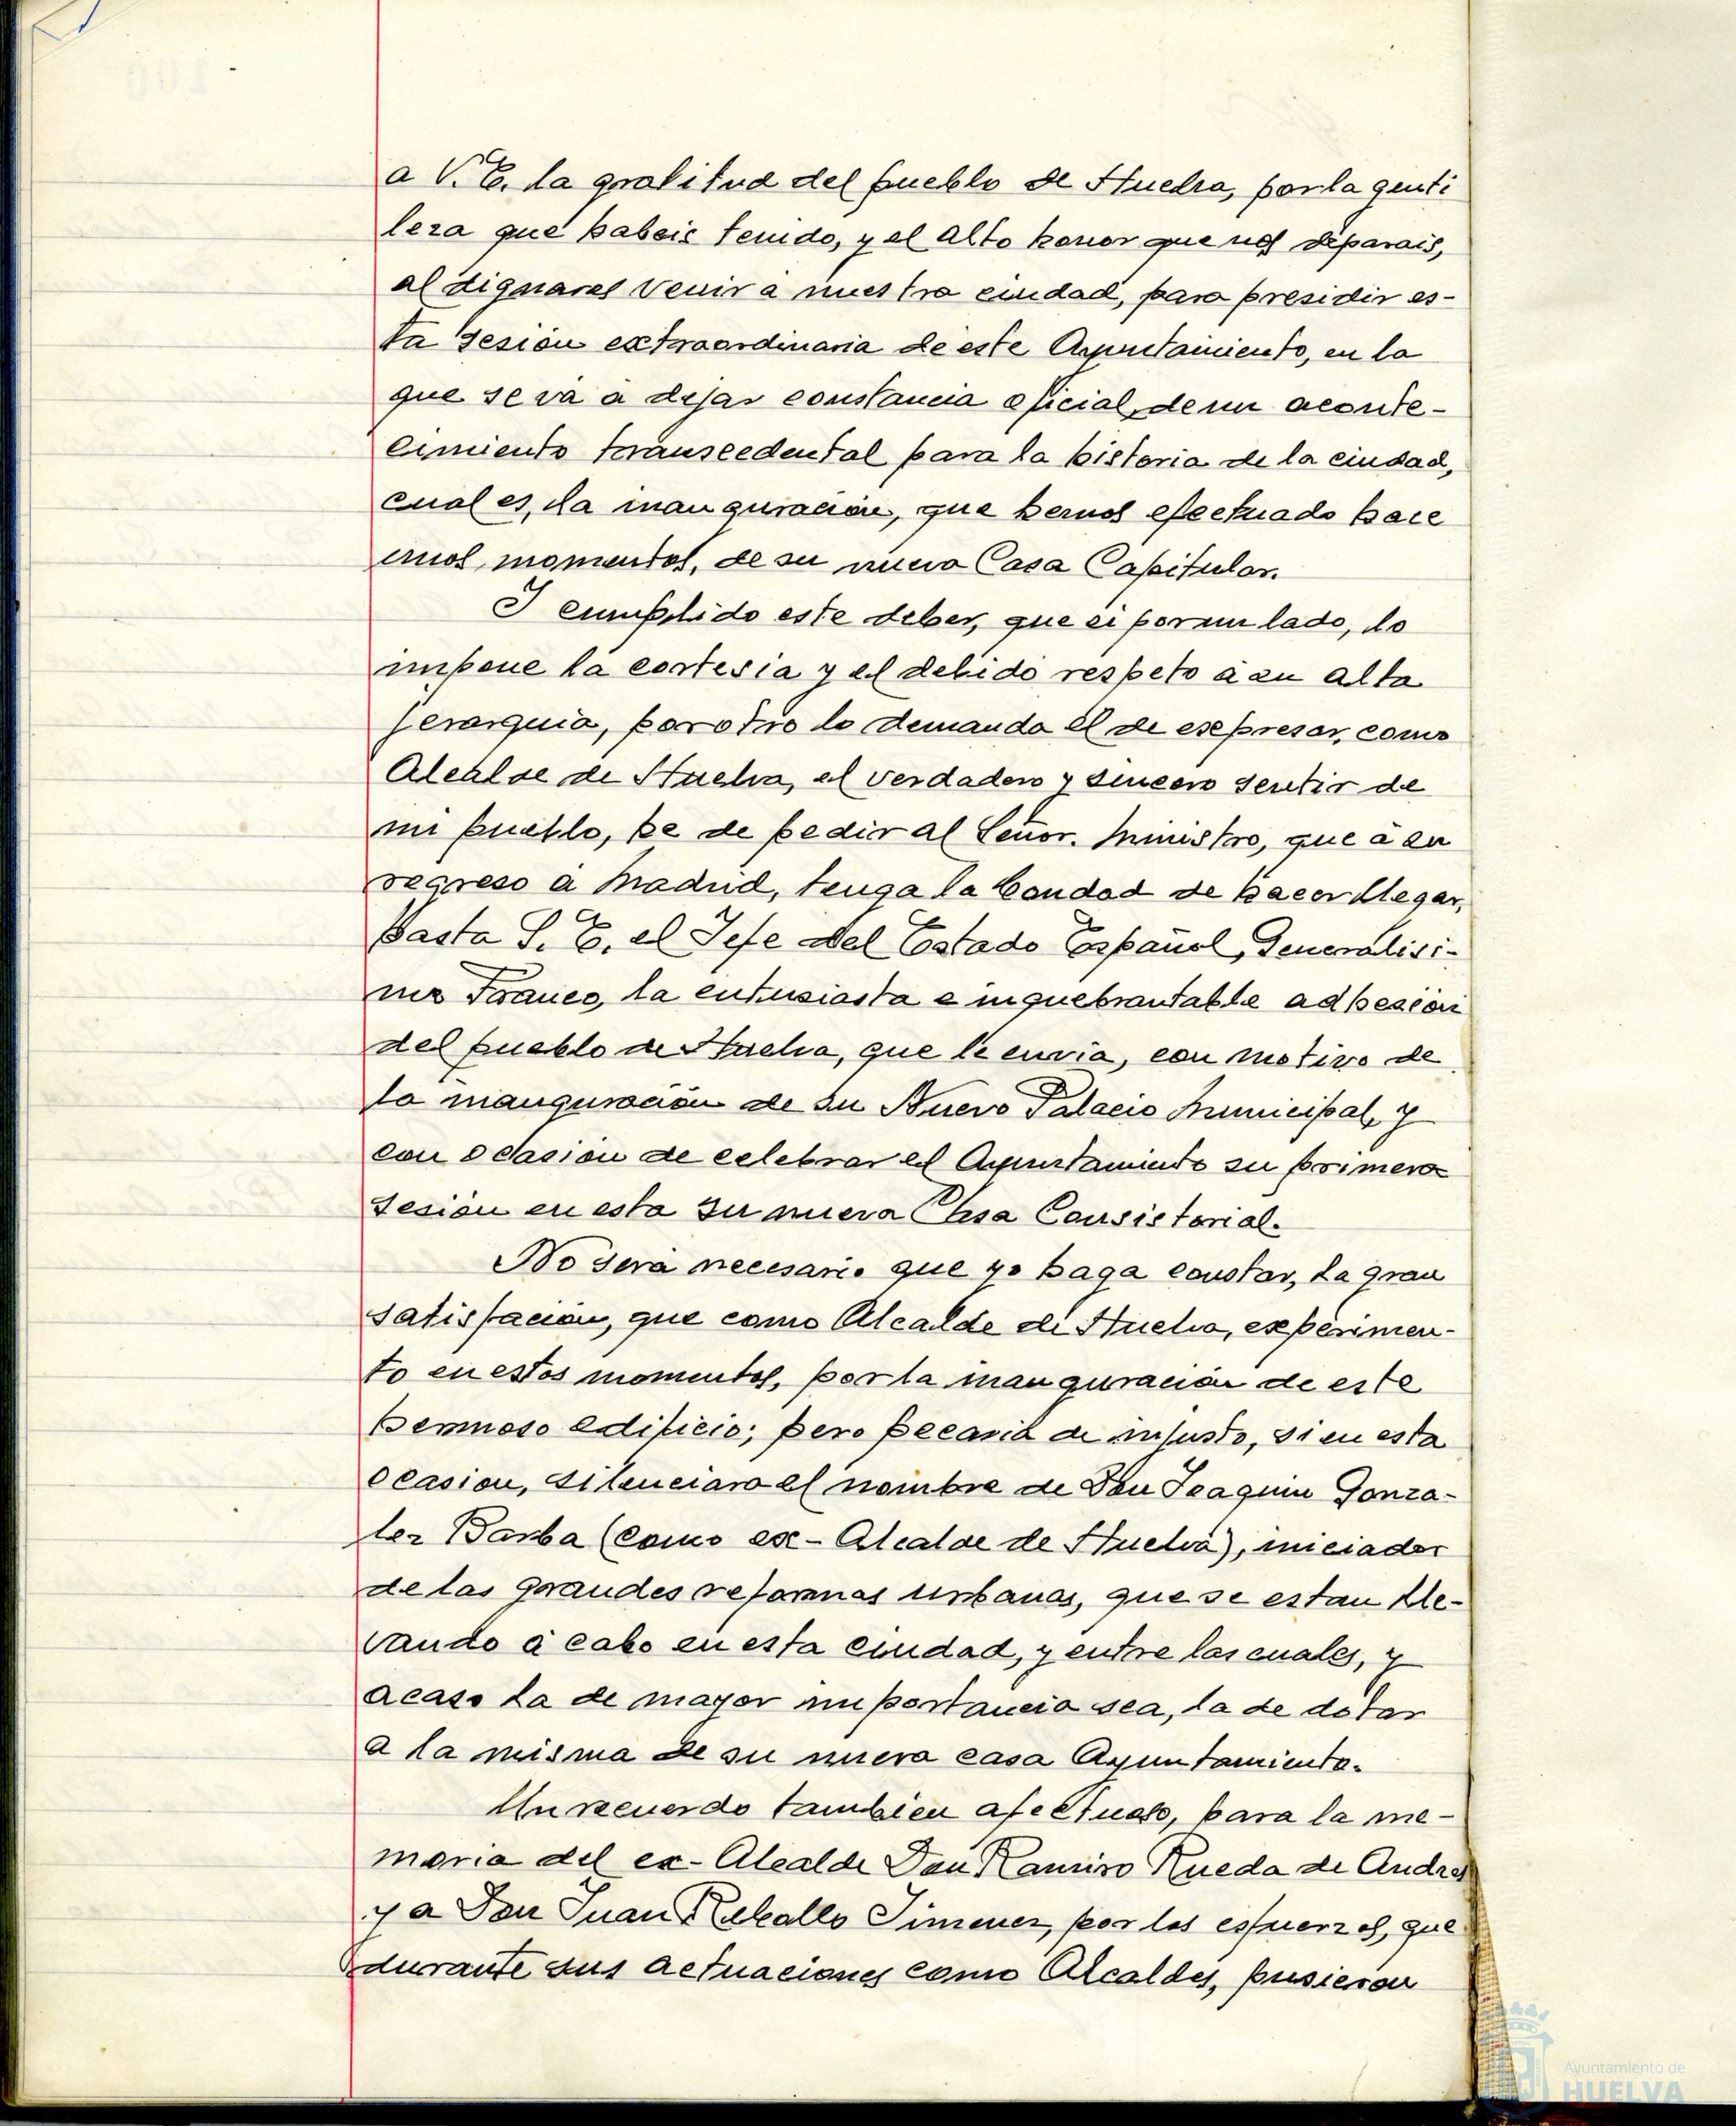 a V. E. la gratitud del pueblo de Huelva, por la genti
leza que habeis tenido, y el alto honor que nos deparais,
al dignaros venir a nuestra ciudad, para presidir es-
ta sesión extraordinaria de este Ayuntamiento, en la
que se va a dejar constancia oficial, de un aconte-
cimiento transcedental para la historia de la ciudad,
cual es, la inauguración, que hemos efectuado hace
unos momentos, de su nueva Casa Capitular.
I cumplido este deber, que si por un lado, lo
impone la cortesia y el debido respeto á su alta
jerarquia, por otro lo demanda el de expresar, como
Alcalde de Huelva, el verdadero y sincero sentir de
mi pueblo, he de pedir al Señor. Ministro, que a su
regreso a Madrid, tenga la bondad de hacer llegar,
hasta S. E. el Jefe del Estado Español, Generalisi-
mo Franco, la entusiasta e inquebrantable adhesión
del pueblo de Huelva, que le envia, con motivo de
la inauguración de su Nuevo Palacio Municipal, y
con ocasión de celebrar el Ayuntamiento su primera
sesión en esta su nueva Casa Consistorial.
No será necesario que yo haga constar, la gran
satisfación, que como Alcalde de Huelva, experimen-
to en estos momentos, por la inauguración de este
hermoso edificio; pero pecaria de injusto, si en esta
ocasion, silenciara el nombre de Don Joaquin Gonza-
lez Barba (como ex-Alcalde de Huelva), iniciador
de las grandes reformas urbanas, que se estan lle-
vando á cabo en esta ciudad, y entre las cuales, y
acaso la de mayor importancia sea, la de dotar
a la misma de su nueva casa Ayuntamiento.
Un recuerdo tambien afectuoso, para la me-
moria del ex-Alcalde Don Ramiro Rueda de Andres
y a Don Juan Rebollo Jimenez, por los esfuerzos, que
durante sus actuaciones como Alcaldes, pusieron
Ayuntamiento de
HUELVA